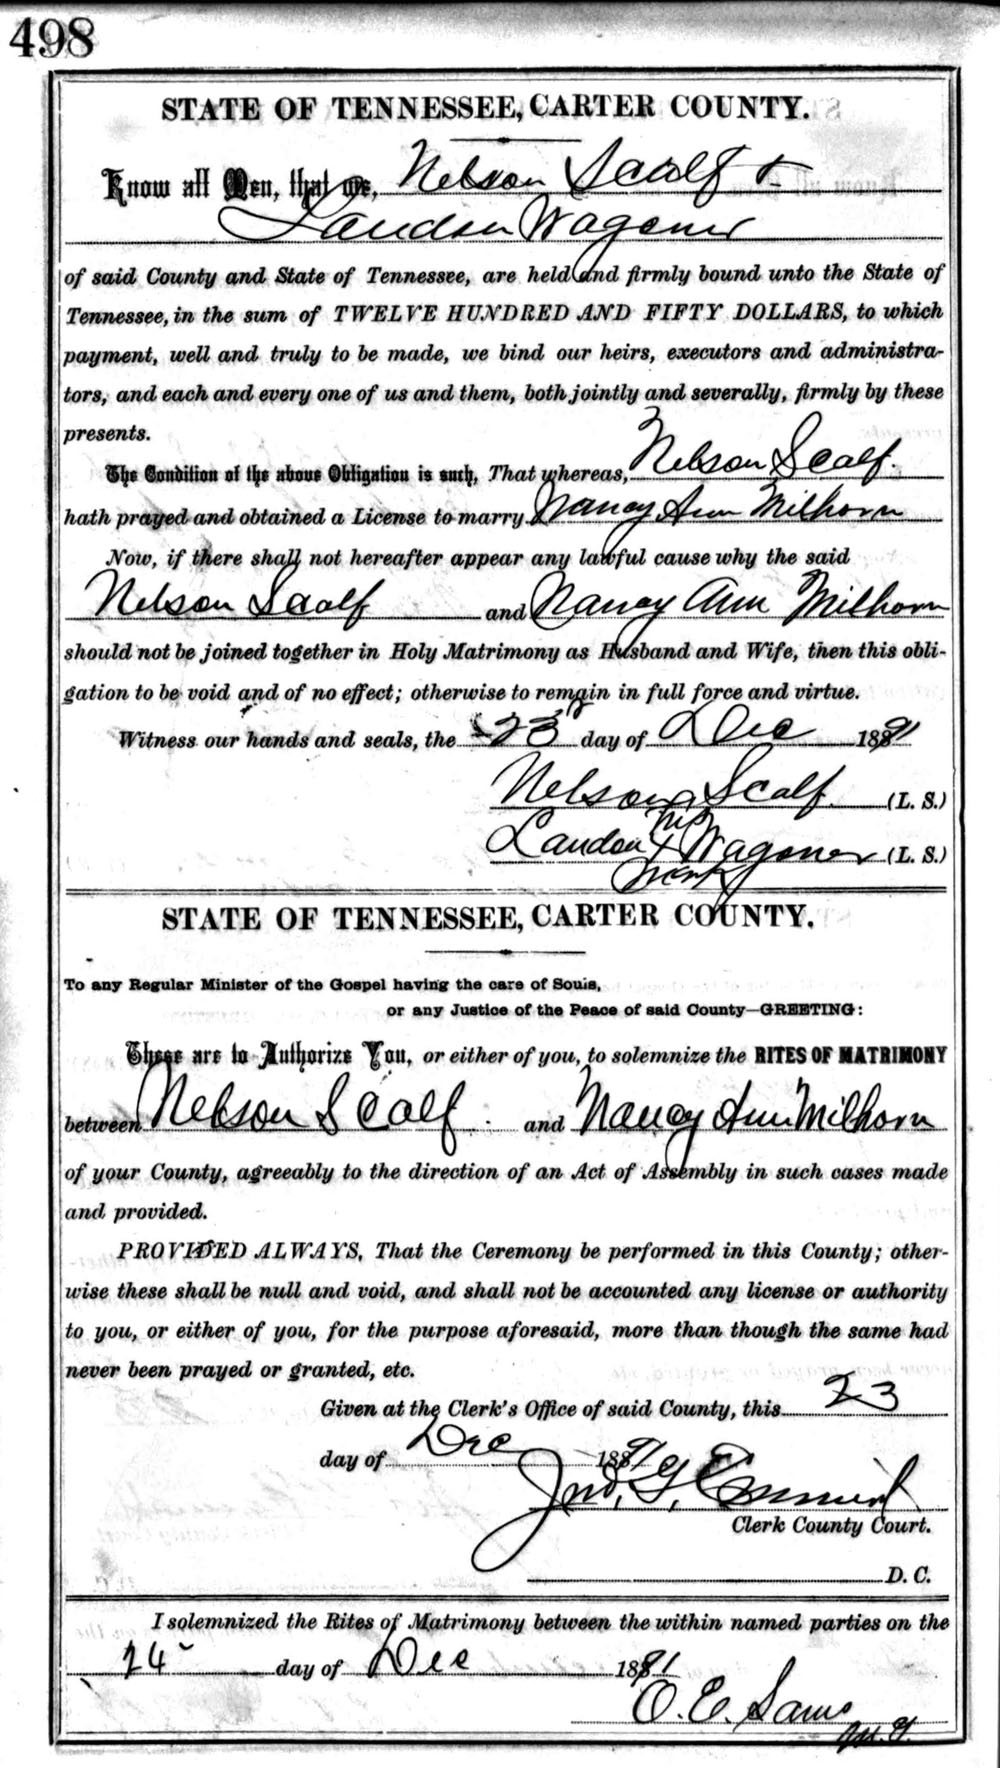 498
STATE OF TENNESSEE, CARTER COUNTY.
Know all Men, that we, Nelson Scalf &
Landon Wagoner
of said County and State of Tennessee, are held and firmly bound unto the State of
Tennessee, in the sum of TWELVE HUNDRED AND FIFTY DOLLARS, to which
payment, well and truly to be made, we bind our heirs, executors and administra-
tors, and each and every one of us and them, both jointly and severally, firmly by these
presents.
The Condition of the above Obligation is such, That whereas, Nelson Scalf.
hath prayed and obtained a License to marry Nancy Ann Milhorn
Now, if there shall not hereafter appear any lawful cause why the said
Nelson Scalf and Nancy Ann Milhorn
should not be joined together in Holy Matrimony as Husband and Wife, then this obli-
gation to be void and of no effect; otherwise to remain in full force and virtue.
Witness our hands and seals, the 23 day of Dec 1891
Nelson Scalf (L. S.)
his
Landon X Wagoner (L. S.)
mark
STATE OF TENNESSEE, CARTER COUNTY.
To any Regular Minister of the Gospel having the care of Souls,
or any Justice of the Peace of said County—GREETING:
These are to Authorize You, or either of you, to solemnize the RITES OF MATRIMONY
between Nelson Scalf and Nancy Ann Milhorn
of your County, agreeably to the direction of an Act of Assembly in such cases made
and provided.
PROVIDED ALWAYS, That the Ceremony be performed in this County; other-
wise these shall be null and void, and shall not be accounted any license or authority
to you, or either of you, for the purpose aforesaid, more than though the same had
never been prayed or granted, etc.
Given at the Clerk's Office of said County, this 23
day of Dec 1891
Jno. G. Emmert
Clerk County Court.
D. C.
I solemnized the Rites of Matrimony between the within named parties on the
24 day of Dec 1891
O. E. Sams